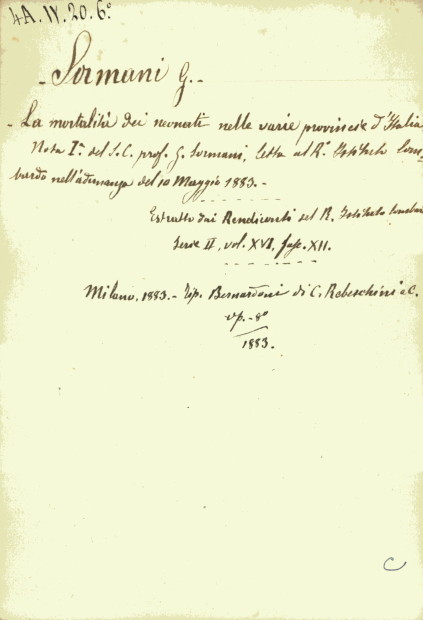 4A. IV. 20. 6º
- Sormani G. -
- La mortalità dei neonati nelle varie provincie d'Italia
Nota Iª. del S.C. prof. G. Sormani, letta al Rº. Istituto lom-
bardo nell'adunanza del 10 Maggio 1883. -
Estratto dai Rendiconti del R. Istituto lombardo
Serie II, vol. XVI, fasc. XII.
Milano. 1883. - Tip. Bernardoni di C. Rebeschini e C.
op. - 8º
1883.
C